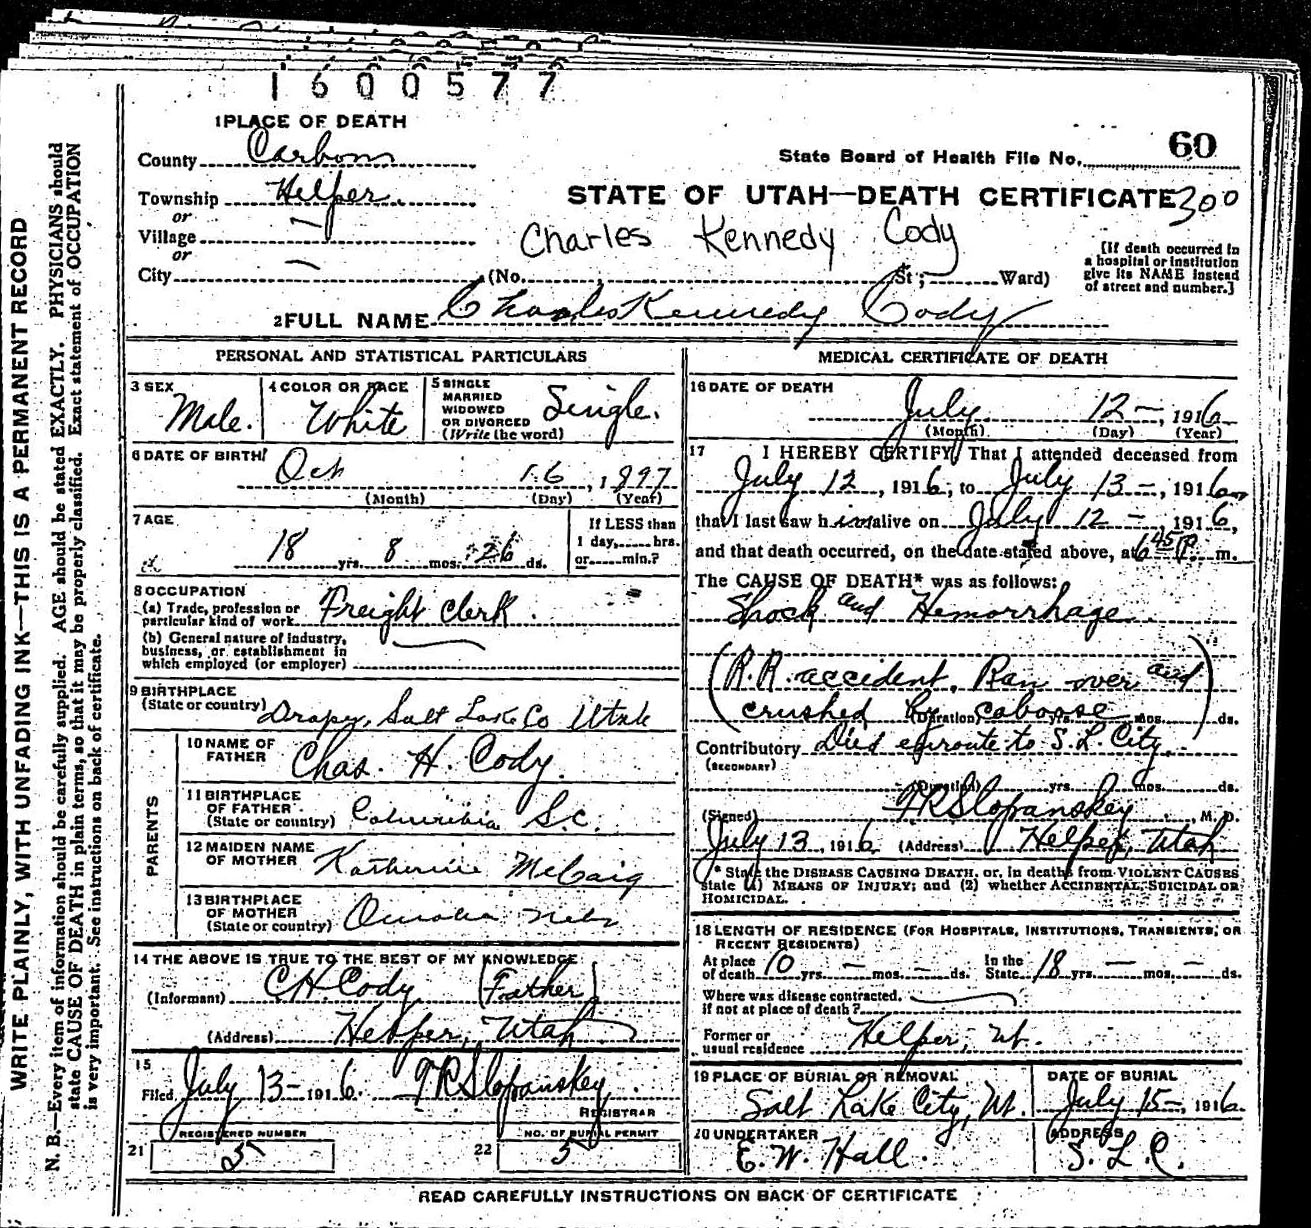 1600577
1 PLACE OF DEATH
County Carbon
State Board of Health File No. 60
Township Helper.
STATE OF UTAH—DEATH CERTIFICATE 300
or
Village —
Charles Kennedy Cody
or
City — (No. St; Ward)
[If death occurred in
a hospital or institution
give its NAME instead
of street and number.]
2 FULL NAME Charles Kennedy Cody
PERSONAL AND STATISTICAL PARTICULARS
3 SEX
Male.
4 COLOR OR RACE
White
5 SINGLE
MARRIED
WIDOWED
OR DIVORCED
(Write the word)
Single.
6 DATE OF BIRTH
Oct 16, 1897
(Month) (Day) (Year)
7 AGE
18 yrs. 8 mos. 26 ds.
If LESS than
1 day, hrs.
or min.?
8 OCCUPATION
(a) Trade, profession or
particular kind of work Freight Clerk.
(b) General nature of industry,
business, or establishment in
which employed (or employer)
9 BIRTHPLACE
(State or country) Drapy, Salt Lake Co Utah
PARENTS
10 NAME OF
FATHER Chas. H. Cody.
11 BIRTHPLACE
OF FATHER
(State or country) Columbia S.C.
12 MAIDEN NAME
OF MOTHER Katherine McCaig
13 BIRTHPLACE
OF MOTHER
(State or country) Omaha Nebr
14 THE ABOVE IS TRUE TO THE BEST OF MY KNOWLEDGE
(Informant) C H Cody (Father)
(Address) Helper, Utah
15
Filed July 13-1916. F R Slopanskey.
REGISTRAR
REGISTERED NUMBER
21
NO. OF BURIAL PERMIT
22 5
MEDICAL CERTIFICATE OF DEATH
16 DATE OF DEATH
July 12-, 1916
(Month) (Day) (Year)
17 I HEREBY CERTIFY, That I attended deceased from
July 12, 1916, to July 13-, 1916,
that I last saw him alive on July 12-, 1916,
and that death occurred, on the date stated above, at 6 45 P. m.
The CAUSE OF DEATH* was as follows:
Shock and Hemorrhage
(R.R. accident. Ran over and
crushed by caboose)
(Duration) yrs. mos. ds.
Contributory Died enroute to S. L. City.
(SECONDARY)
(Duration) yrs. mos. ds.
(Signed) F R Slopanskey, M. D.
July 13, 1916 (Address) Helper, Utah
* State the DISEASE CAUSING DEATH, or, in deaths from VIOLENT CAUSES
state (1) MEANS OF INJURY; and (2) whether ACCIDENTAL, SUICIDAL OR
HOMICIDAL.
18 LENGTH OF RESIDENCE (FOR HOSPITALS, INSTITUTIONS, TRANSIENTS, OR
RECENT RESIDENTS)
At place
of death 10 yrs. — mos. — ds.
In the
State 18 yrs. — mos. — ds.
Where was disease contracted,
if not at place of death?
Former or
usual residence Helper, Ut.
19 PLACE OF BURIAL OR REMOVAL
Salt Lake City, Ut.
DATE OF BURIAL
July 15-, 1916.
20 UNDERTAKER
E. W. Hall.
ADDRESS
S. L. C.
READ CAREFULLY INSTRUCTIONS ON BACK OF CERTIFICATE
WRITE PLAINLY, WITH UNFADING INK—THIS IS A PERMANENT RECORD
N. B.—Every item of information should be carefully supplied. AGE should be stated EXACTLY. PHYSICIANS should
state CAUSE OF DEATH in plain terms, so that it may be properly classified. Exact statement of OCCUPATION
is very important. See instructions on back of certificate.